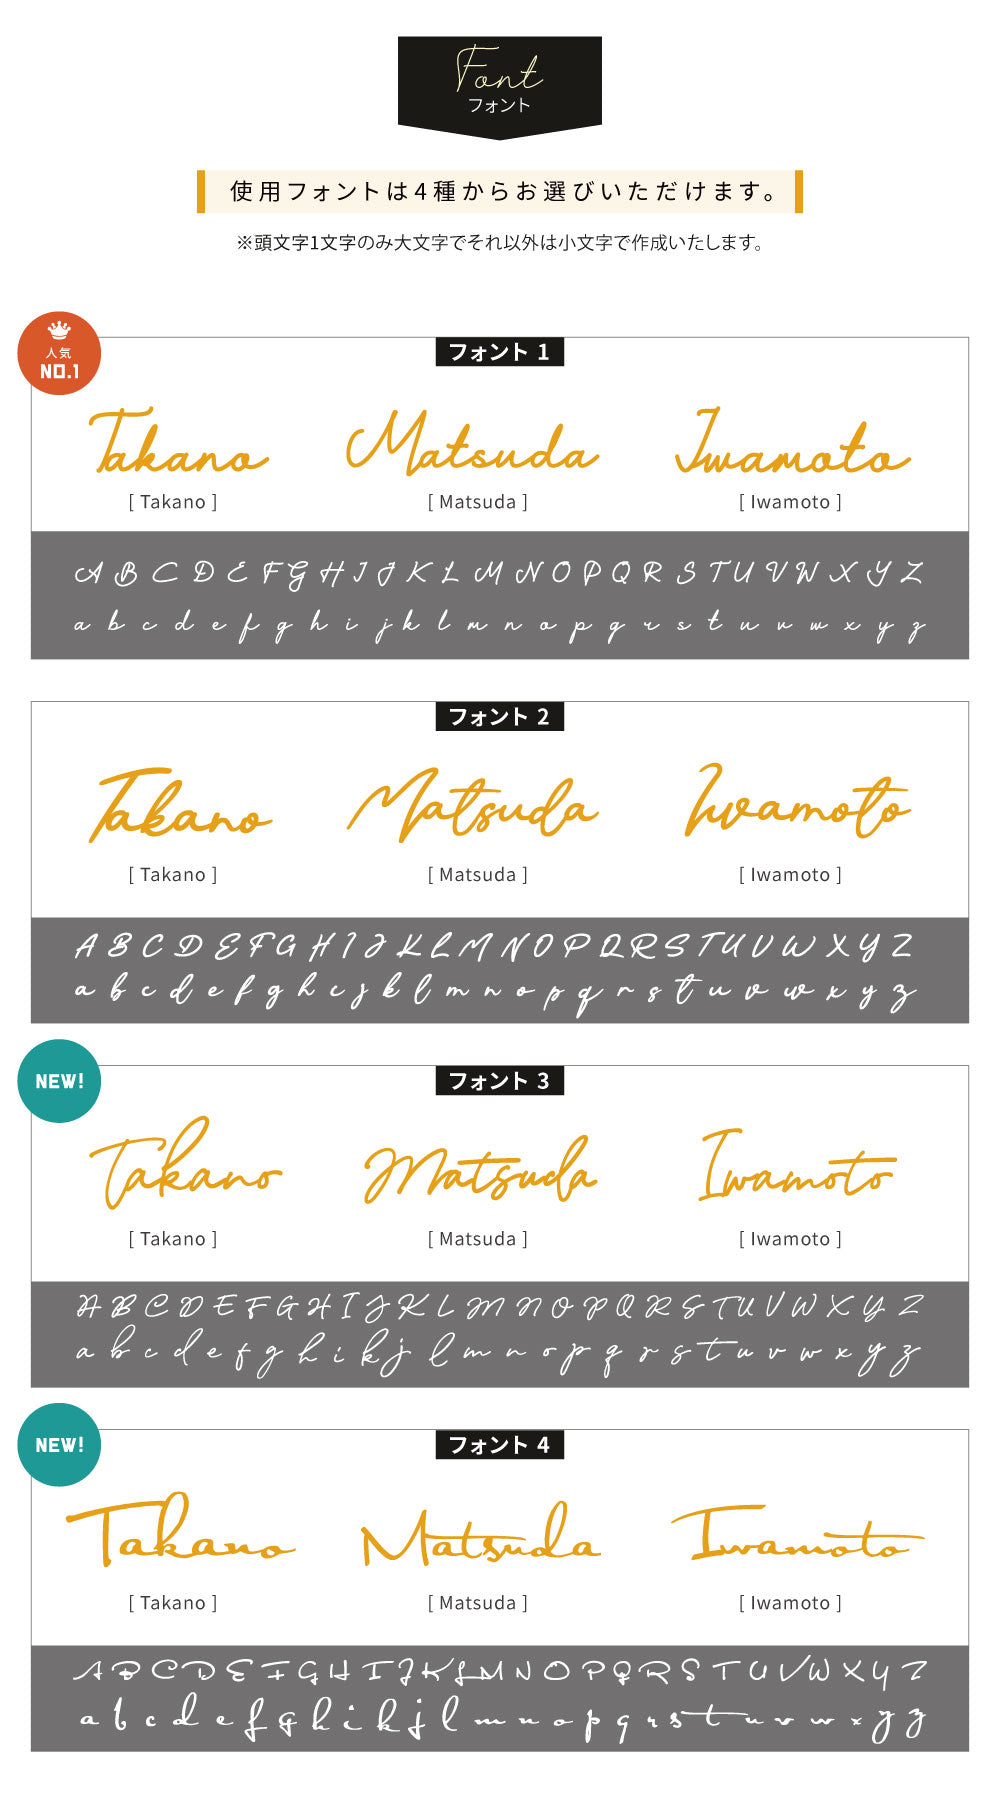 Font
フォント
使用フォントは4種からお選びいただけます。
※頭文字1文字のみ大文字でそれ以外は小文字で作成いたします。
人気
NO.1
フォント 1
Takano Matsuda Iwamoto
[ Takano ] [ Matsuda ] [ Iwamoto ]
A B C D E F G H I J K L M N O P Q R S T U V W X Y Z
a b c d e f g h i j k l m n o p q r s t u v w x y z
フォント 2
Takano Matsuda Iwamoto
[ Takano ] [ Matsuda ] [ Iwamoto ]
A B C D E F G H I J K L M N O P Q R S T U V W X Y Z
a b c d e f g h i j k l m n o p q r s t u v w x y z
NEW!
フォント 3
Takano Matsuda Iwamoto
[ Takano ] [ Matsuda ] [ Iwamoto ]
A B C D E F G H I J K L M N O P Q R S T U V W X Y Z
a b c d e f g h i k j l m n o p q r s t u v w x y z
NEW!
フォント 4
Takano Matsuda Iwamoto
[ Takano ] [ Matsuda ] [ Iwamoto ]
A B C D E F G H I J K L M N O P Q R S T U V W X Y Z
a b c d e f g h i k j l m n o p q r s t u v w x y z